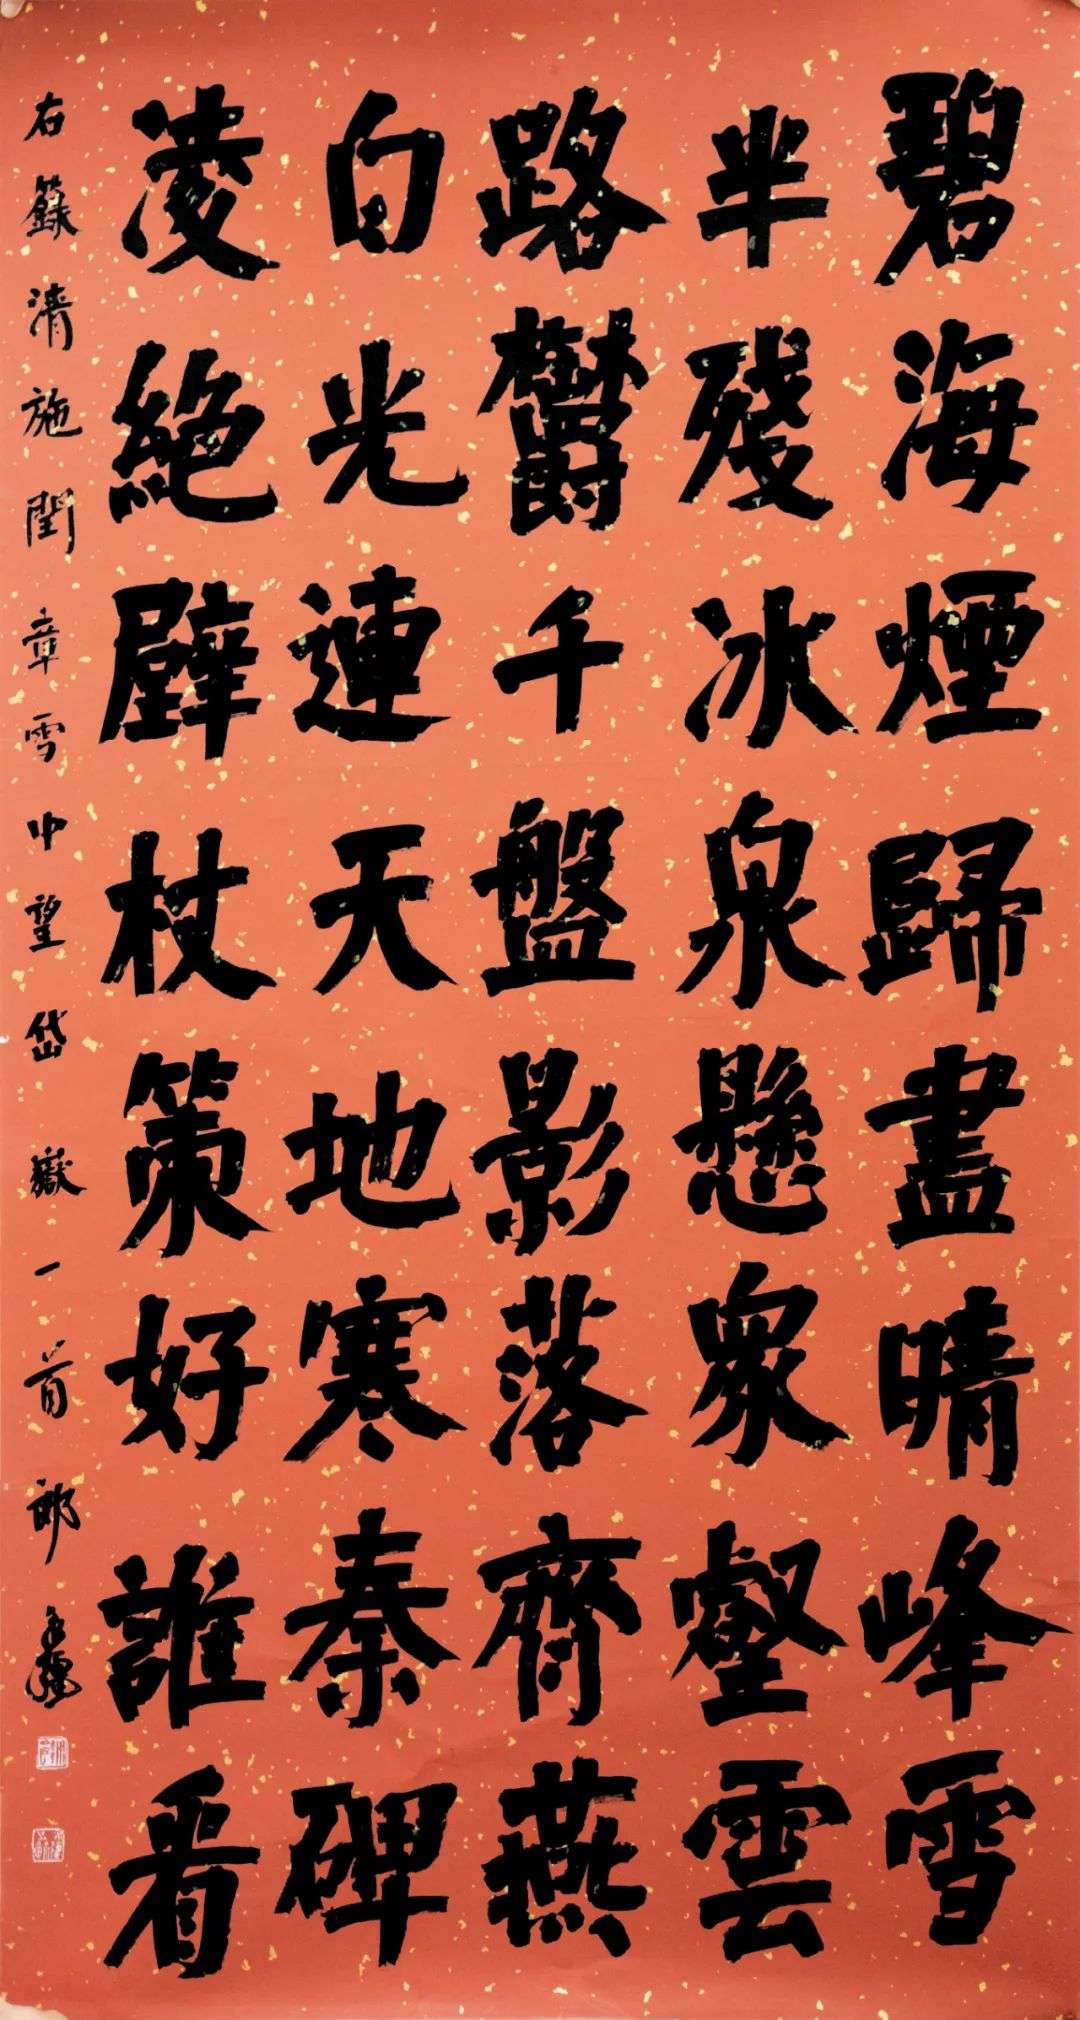 碧海煙歸盡晴峰雪
半殘冰泉懸衆壑雲
路鬱千盤影落齊燕
白光連天地寒秦碑
凌絕壁杖策好誰看
右籙清施閏章雪中望岱嶽一首